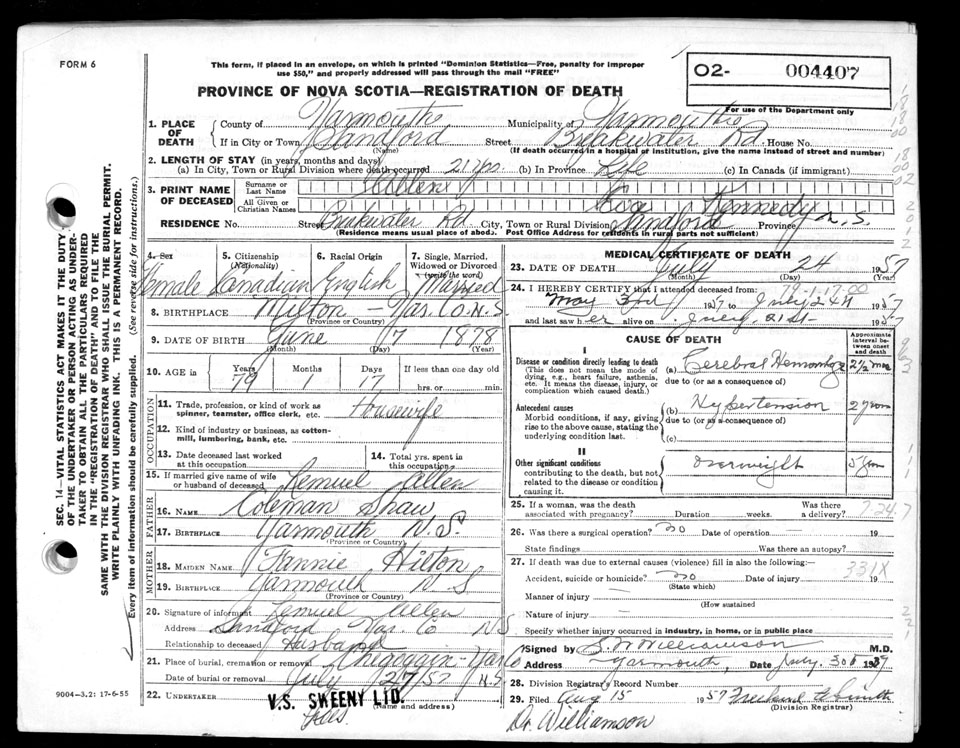 FORM 6
This form, if placed in an envelope, on which is printed "Dominion Statistics—Free, penalty for improper
use $50," and properly addressed will pass through the mail "FREE"
O2- 004407
For use of the Department only
PROVINCE OF NOVA SCOTIA—REGISTRATION OF DEATH
1. PLACE OF DEATH
County of Yarmouth Municipality of Yarmouth
If in City or Town Sandford Street Breakwater Rd. House No.
(Name) (If death occurred in a hospital or institution, give the name instead of street and number)
2. LENGTH OF STAY (in years, months and days)
(a) In City, Town or Rural Division where death occurred 21 yrs (b) In Province Life (c) In Canada (if immigrant)
3. PRINT NAME OF DECEASED
Surname or Last Name Allen
All Given or Christian Names Eva Kennedy
RESIDENCE No. Street Breakwater Rd City, Town or Rural Division Sandford Province N.S.
(Residence means usual place of abode. Post Office Address for residents in rural parts not sufficient)
4. Sex Female
5. Citizenship (Nationality) Canadian
6. Racial Origin English
7. Single, Married, Widowed or Divorced (write the word) Married
8. BIRTHPLACE Milton - Yar. Co. N.S.
(Province or Country)
9. DATE OF BIRTH June 17 1878
(Month) (Day) (Year)
10. AGE in Years 79 Months 1 Days 17 If less than one day old
hrs. or min.
OCCUPATION
11. Trade, profession, or kind of work as spinner, teamster, office clerk, etc. Housewife
12. Kind of industry or business, as cotton-mill, lumbering, bank, etc.
13. Date deceased last worked at this occupation
14. Total yrs. spent in this occupation
15. If married give name of wife or husband of deceased Lemuel Allen
FATHER
16. NAME Coleman Shaw
17. BIRTHPLACE Yarmouth N.S.
(Province or Country)
MOTHER
18. MAIDEN NAME Fannie Hilton
19. BIRTHPLACE Yarmouth N.S
(Province or Country)
20. Signature of informant Lemuel Allen
Address Sandford Yar. Co N.S
Relationship to deceased Husband
21. Place of burial, cremation or removal Chegoggin - Yar Co
Date of burial or removal July 27/57 N.S
22. UNDERTAKER V.S. SWEENY LTD.
(Name and address)
MEDICAL CERTIFICATE OF DEATH
23. DATE OF DEATH July 24 1957
(Month) (Day) (Year)
79-1-17-00
24. I HEREBY CERTIFY that I attended deceased from:
May 3rd 1957 to July 24th 1957
and last saw her alive on July 21st 1957
CAUSE OF DEATH
Approximate interval between onset and death
I
Disease or condition directly leading to death
(This does not mean the mode of dying, e.g., heart failure, asthenia, etc. It means the disease, injury, or complication which caused death.)
(a) Cerebral Hemorrhage 2½ mos
due to (or as a consequence of)
Antecedent causes
Morbid conditions, if any, giving rise to the above cause, stating the underlying condition last.
(b) Hypertension
due to (or as a consequence of)
(c)
II
Other significant conditions
contributing to the death, but not related to the disease or condition causing it.
Overweight
25. If a woman, was the death associated with pregnancy? Duration weeks. Was there a delivery?
26. Was there a surgical operation? no Date of operation 19
State findings Was there an autopsy?
27. If death was due to external causes (violence) fill in also the following:—
331X
Accident, suicide or homicide? no Date of injury 19
(State which)
Manner of injury
(How sustained)
Nature of injury
Specify whether injury occurred in industry, in home, or in public place
Signed by S. W. Williamson M.D.
Address Yarmouth Date July 30
28. Division Registrar's Record Number
29. Filed Aug 15 1957
(Division Registrar)
Dr. Williamson
SEC. 14—VITAL STATISTICS ACT MAKES IT THE DUTY
OF THE UNDERTAKER OR PERSON ACTING AS UNDER-
TAKER TO OBTAIN ALL THE PARTICULARS REQUIRED
IN THE "REGISTRATION OF DEATH" AND TO FILE THE
SAME WITH THE DIVISION REGISTRAR WHO SHALL ISSUE THE BURIAL PERMIT.
WRITE PLAINLY WITH UNFADING INK. THIS IS A PERMANENT RECORD.
Every item of information should be carefully supplied. (See reverse side for instructions.)
9004-3.2: 17-6-55